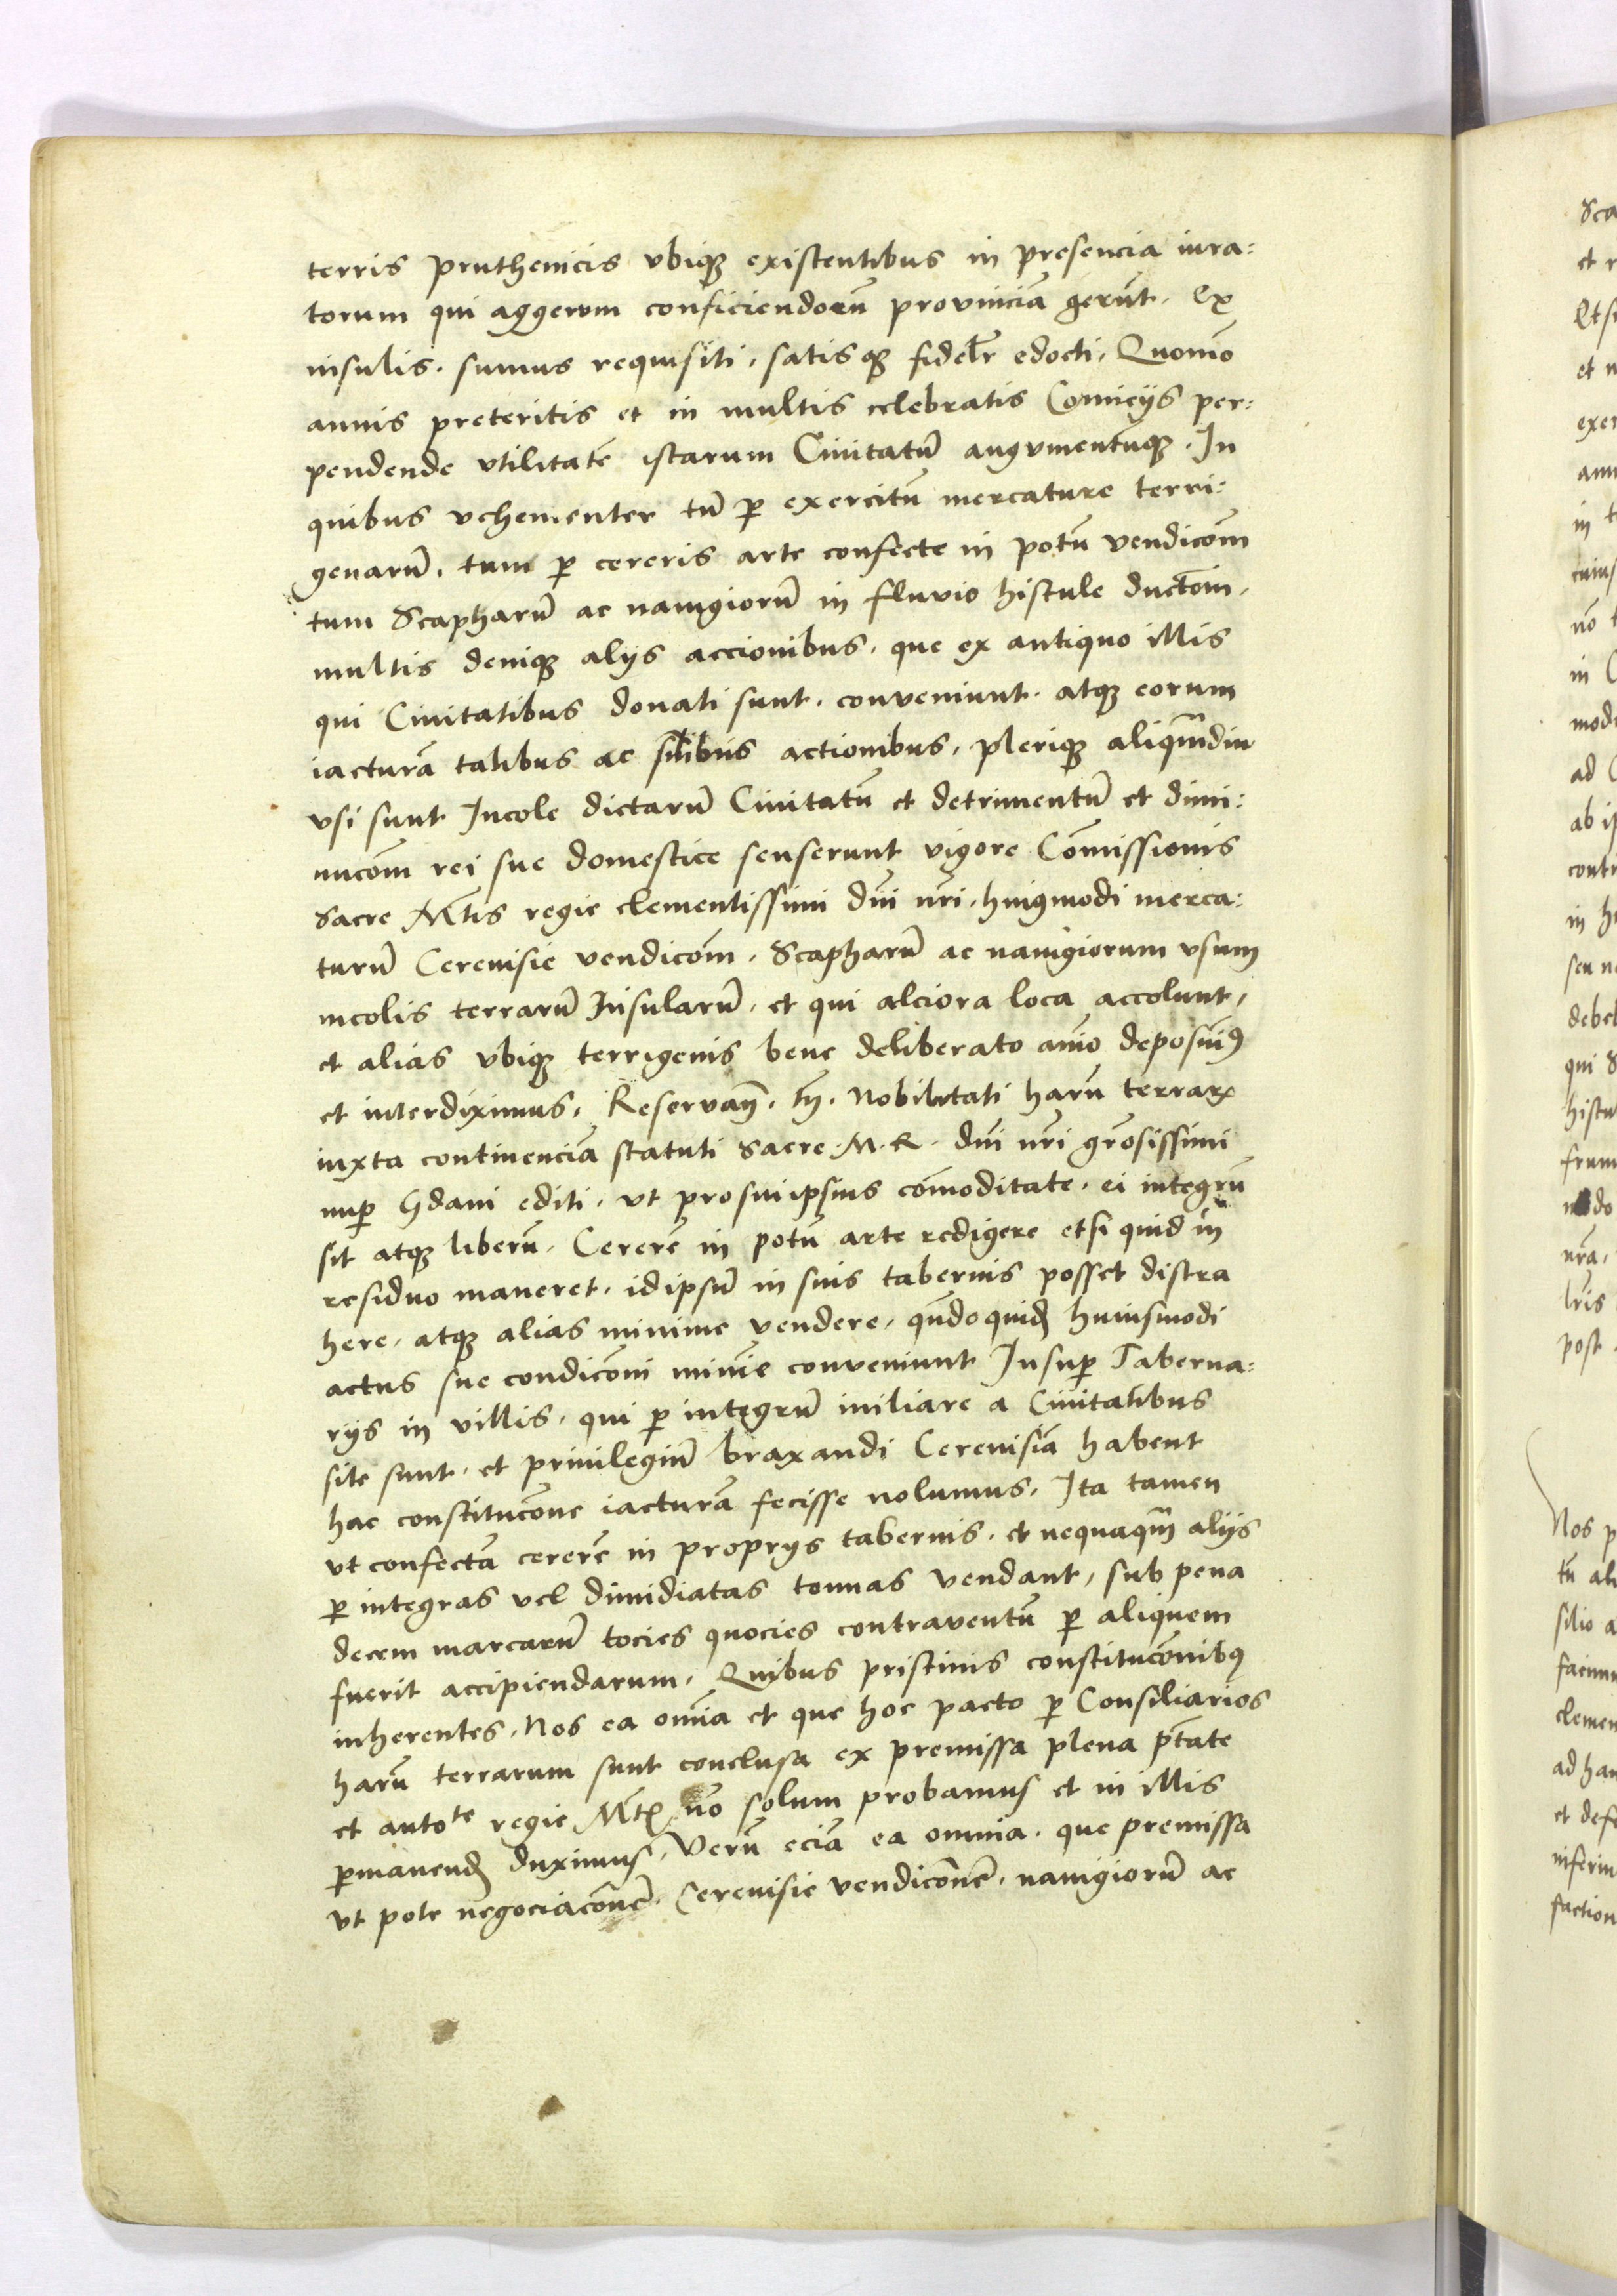 terris pruthenicis vbiqꝫ existentibus in presencia iura:
torum qui aggerum conficiendorū provinciā gerūt. Ex
insulis. sumus requisiti, satisqꝫ fidelr̄ edocti, Quomō
annis preteritis et in multis celebratis Comicijs per:
pendende vtilitatē istarum Ciuitatū augumentūqꝫ. In
quibus vehementer tū ꝑ exercitū mercature terri:
genarū, tum ꝑ cereris arte confecte in potū vendicōm
tum Scapharū ac nauigiorū in fluvio histule ductoīn.
multis deniqꝫ alijs accionibus, que ex antiquo illis
qui Ciuitatibus donati sunt, conveniunt. atqꝫ eorum
iacturā talibus ac silibus actionibus, pleriqꝫ aliqm̄diu
vsi sunt Incole dictarū Ciuitatū et detrimentū et dimi:
nucōm rei sue domestice senserunt vigore Cōmissionis
Sacre Mt̄is regie clementissimi dn̄i nr̄i. huiꝰmodi merca:
turū Cereuisie vendicōm, Scapharū ac nauigiorum vsum
incolis terrarū Insularū, et qui alciora loca accolunt,
et alias vbiqꝫ terrigenis bene deliberato aīo deposuimꝰ
et interdiximus, Reservan̄. tn̄. Nobilitati harū terrarꝝ
iuxta continenciā statuti Sacre. M. R. dn̄i nr̄i grōsissimi
nuꝑ Gdani editi, vt pro sui ipsius cōmoditate, ei integrū
sit atqꝫ liberū, Cererē in potū arte redigere etsi quid in
residuo maneret, id ipsū in suis tabernis posset distra
here, atqꝫ alias minime vendere, qn̄do quidē huiusmodi
actus sue condicōni mīnīe conveniunt Insuꝑ Taberna:
rijs in villis, qui ꝑ integrū miliare a Ciuitatibus
site sunt, et priuilegiū braxandi Cereuisiā habent
hac constitucōne iacturā fecisse nolumus, Ita tamen
vt confectā cererē in proprijs tabernis, et nequaqm̄ alijs
ꝑ integras vel dimidiatas tonnas vendant, sub pena
decem marcarū tocies quocies contraventū ꝑ aliquem
fuerit accipiendarum, Quibus pristinis constitucōnibꝰ
inherentes, Nos ea om̄ia et que hoc pacto ꝑ Consiliarios
harū terrarum sunt conclusa ex premissa plena ptāte
et autote regie Mt̄ꝫ nō solum probamus et in illis
ꝑmanendū duximus, Verū eciā ea omnia, que premissa
vt pote negociacōnē, Cereuisie vendicōnē, nauigiorū ac